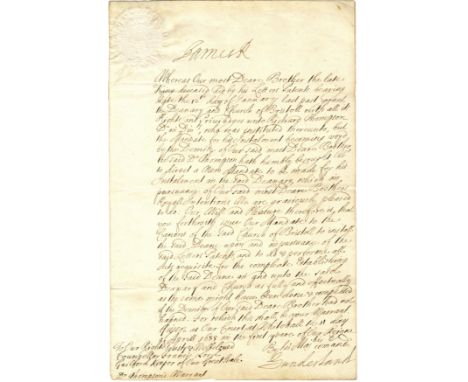 James R
Whereas Our most Deare Brother the late
King deceased did by his Letters Patents bearing
date the 12th day of January last past grant the
Deanary and Church of Bristoll with all it
Rights and Priviledges unto Richard Thompson
Dr in Divinity who was instituted thereunto, but
the Mandate for his Instalment becoming voyd
by the Demise of Our said most Deare Brother,
the said Dr Thompson hath humbly besought Us
to direct a New Mandate to be made for his
Instalment in the said Deanary, which in
pursuance of Our said most Deare Brothers
Royall Intentions We are graciously pleased
to do. Our Will and Pleasure therefore is, that
you forthwith issue Our Mandate to the
Canons of the said Church of Bristoll to install
the said Deane upon and in pursuance of the
said Letters Patents, and to do & performe all
Acts requisite for the compleat Establishing
of the said Deane in and unto the said
Deanary and Church as fully and effectually
as the same might have been done & compleated
if the Demise of Our said Deare Brother had not
happned. For which this shall be your Warrant.
Given at Our Court at Whitehall the 11 day
of April 1685 in the first yeare of Our Reigne
By his Maties comand
Sunderland
To Our Right Trusty & Welbeloved
Councellor Francis Lord
Guilford Keeper of Our Great Seale
Dr Thompsons Warrant